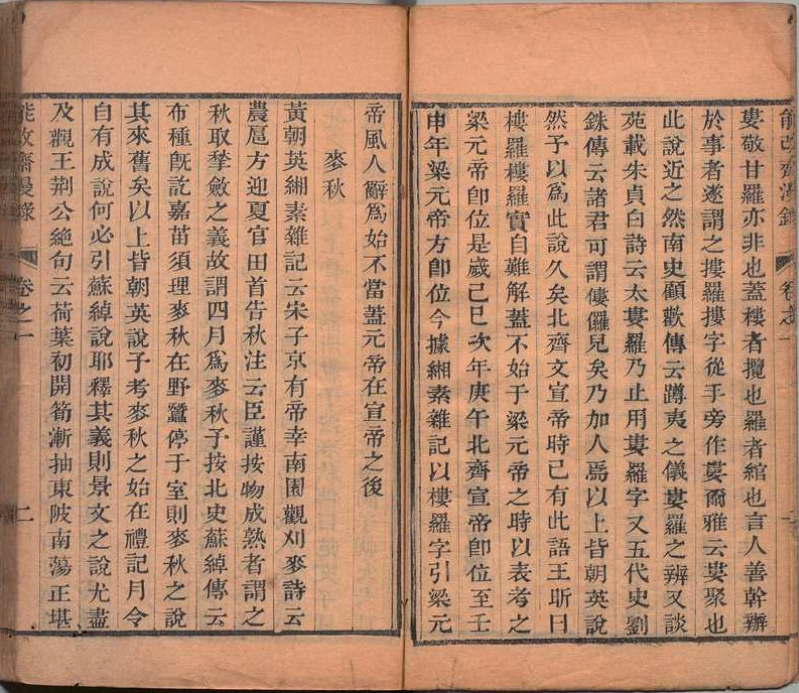 能改齋漫錄
卷之一
婁敬甘羅亦非也蓋樓者攬也羅者綰也言人善幹辦
於事者遂謂之摟羅摟字從手旁作婁爾雅云婁聚也
此說近之然南史顧歡傳云蹲夷之儀婁羅之辨又談
苑載朱貞白詩云太婁羅乃止用婁羅字又五代史劉
銖傳云諸君可謂僂儸兒矣乃加人焉以上皆朝英說
然予以為此說久矣北齊文宣帝時已有此語王昕曰
樓羅樓羅實自難解蓋不始于梁元帝之時以表考之
梁元帝卽位是歲己巳次年庚午北齊宣帝卽位至壬
申年梁元帝方卽位今據緗素雜記以樓羅字引梁元
帝風人辭為始不當蓋元帝在宣帝之後
麥秋
黃朝英緗素雜記云宋子京有帝幸南園觀刈麥詩云
農扈方迎夏官田首告秋注云臣謹按物成熟者謂之
秋取揫斂之義故謂四月為麥秋予按北史蘇綽傳云
布種旣訖嘉苗須理麥秋在野蠶停于室則麥秋之說
其來舊矣以上皆朝英說予考麥秋之始在禮記月令
自有成說何必引蘇綽說耶釋其義則景文之說尤盡
及觀王荆公絕句云荷葉初開筍漸抽東陂南蕩正堪
能改齋漫錄
卷之一
二